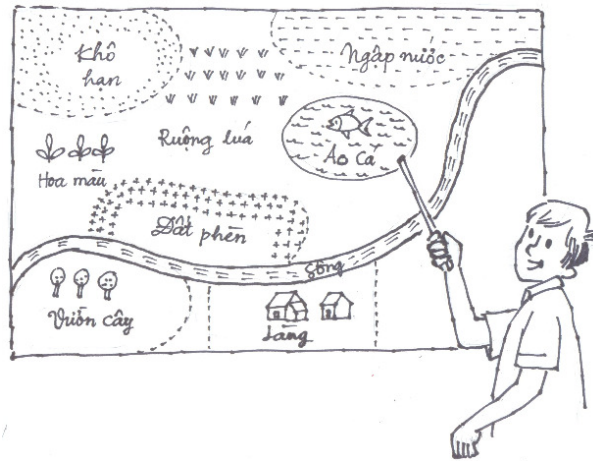 Khô
hạn
Ngập nước
Ruộng luá
Ao Cá
Hoa màu
Đất phèn
Sông
Vườn cây
Làng